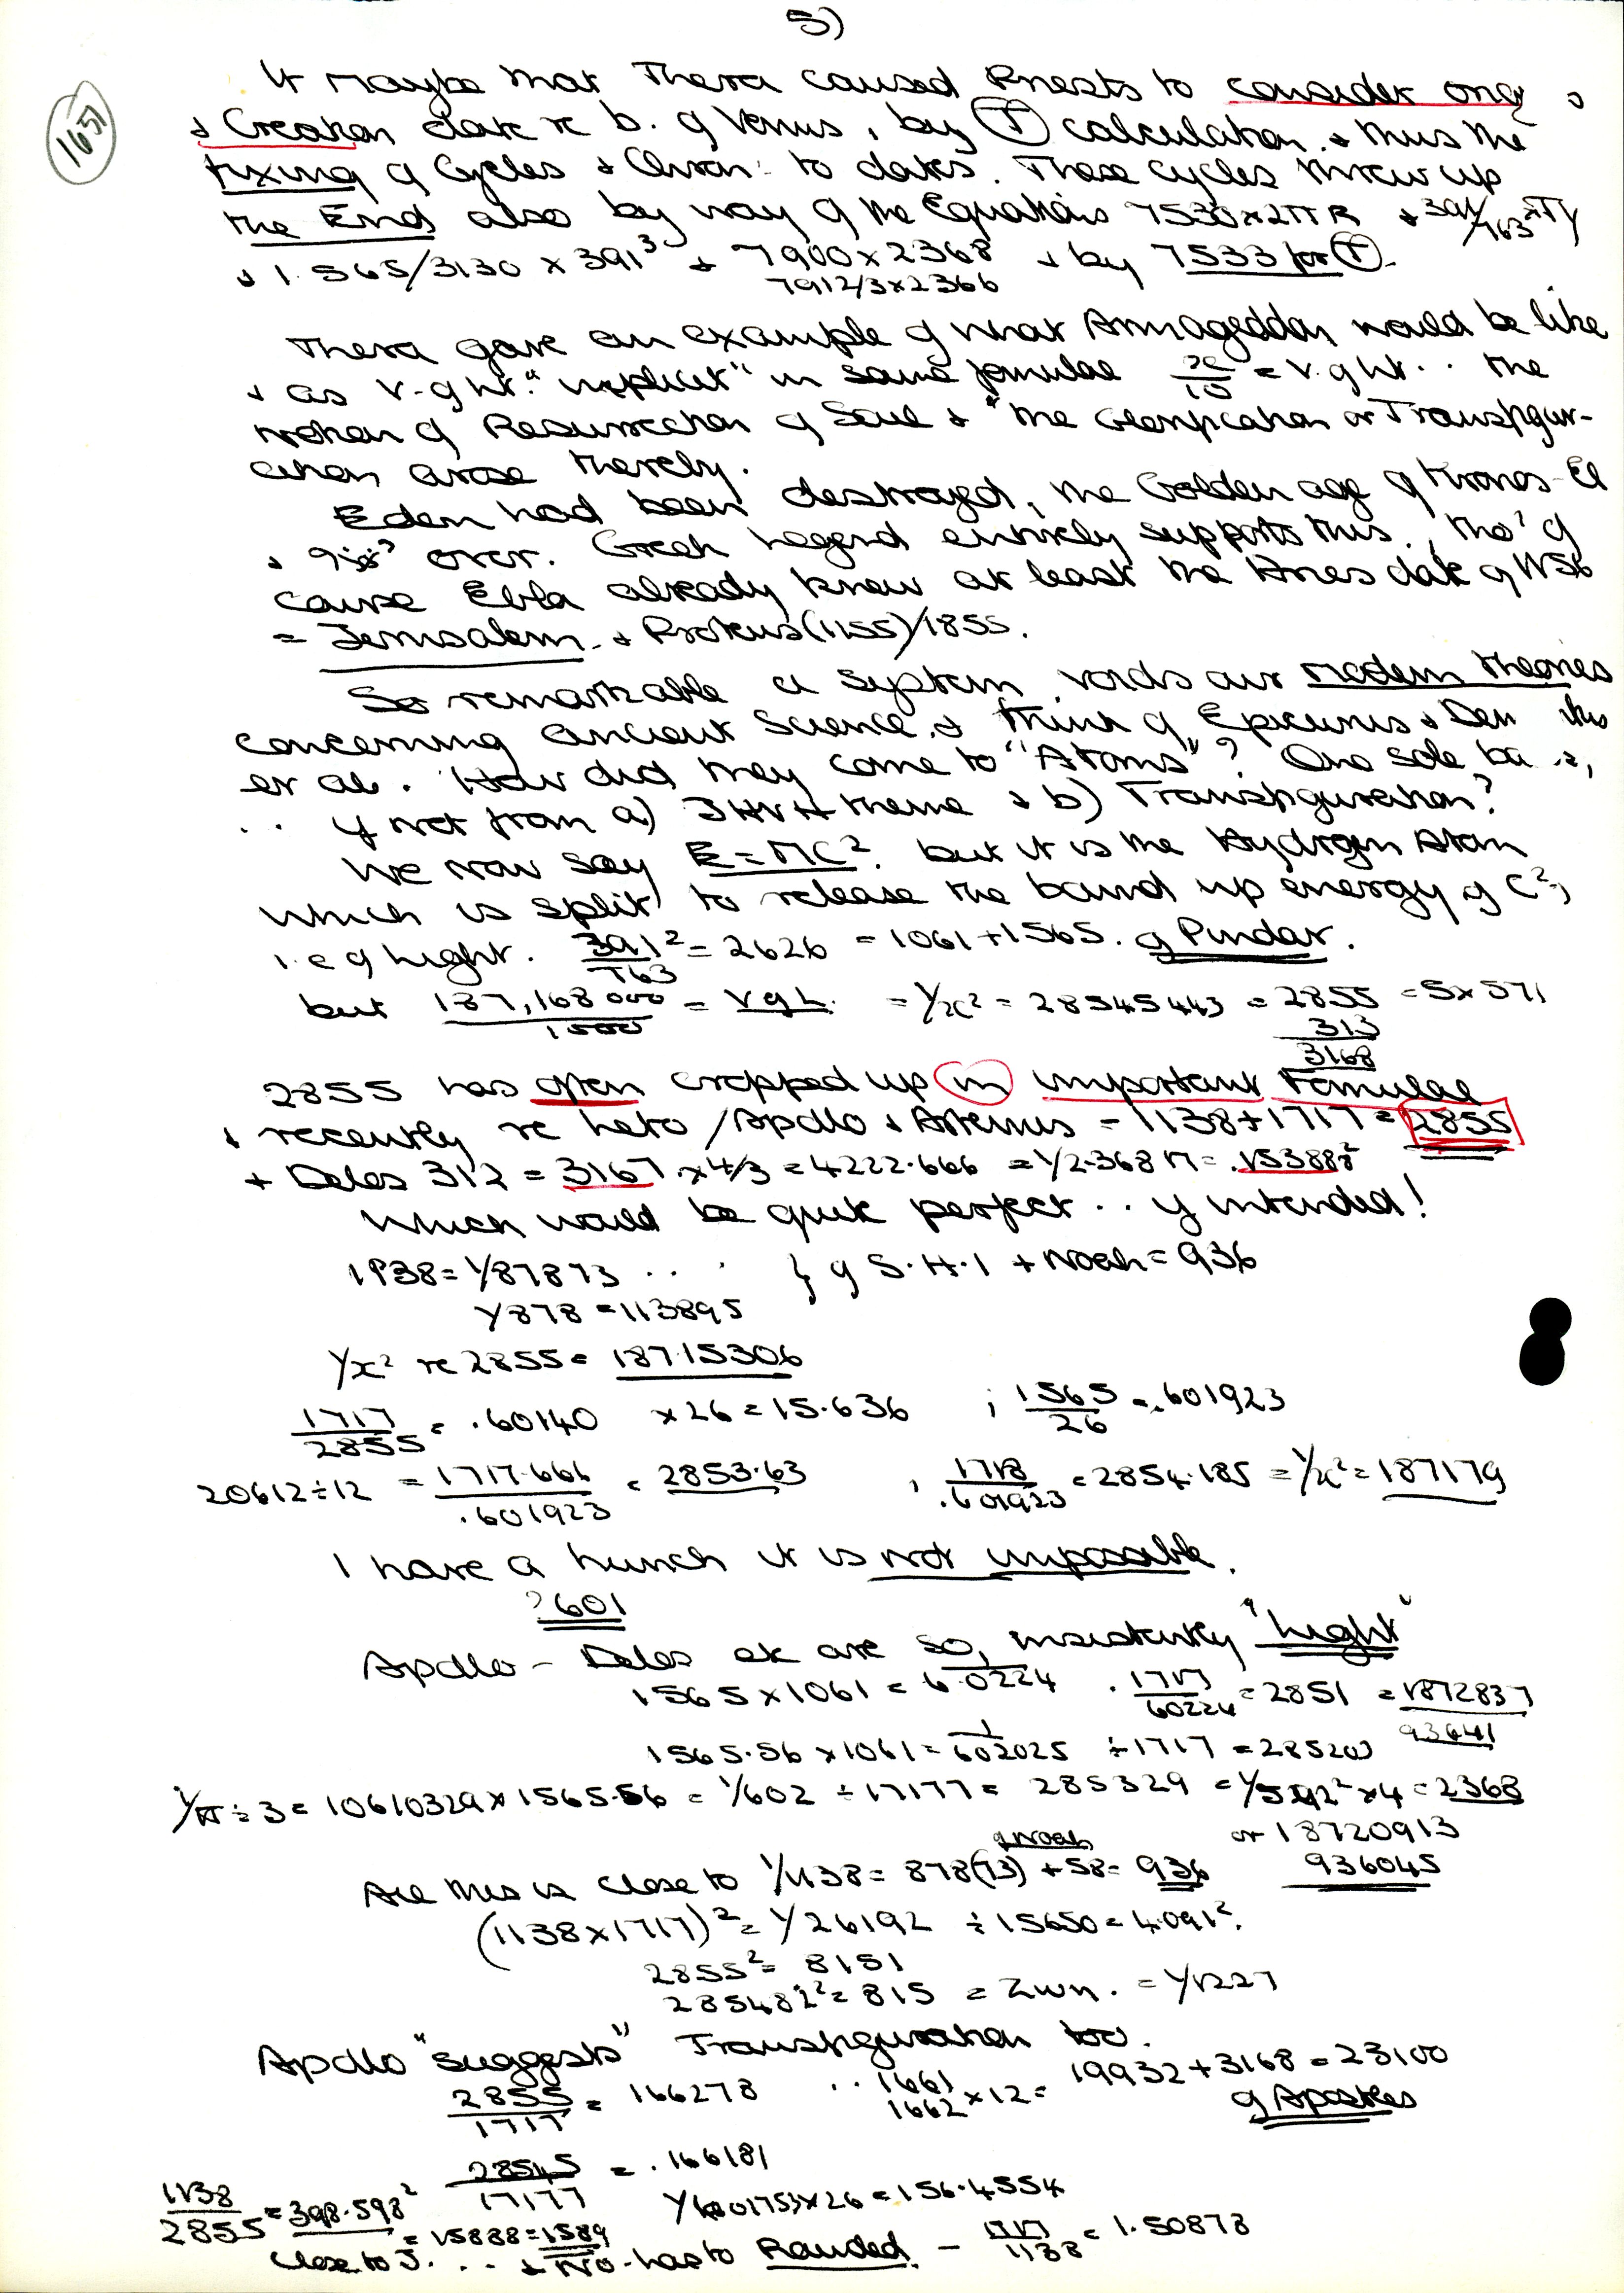 5)
1651
It maybe that Thera caused Priests to consider orig
+ Creation date re b. of Venus, by (T) calculation, + thus the
fixing of Cycles + Chron: to dates. These cycles threw up
the End also by way of the Equations 7530x2πR + 391/763 x Ty
+ 1.565/3130 x 391³ + 7900x2368 + by 7533 for (T).
7912/3x2366
Thera gave an example of what Armageddon would be like
+ as V-g ht. "implicit" in same formulae x/10 = V.g ht .. the
notion of Resurrection of Soul + "the Glorification or Transfigur-
ation arose thereby.
Eden had been destroyed, the Golden age of Kronos-El
+ over. Greek Legend entirely supports this, tho' of
course Ebla already knew at least the Aries date of 1156
= Jerusalem + Proteus (1155)/1855.
So remarkable a system voids our modern theories
concerning ancient Science, + think of Epicurus + Dem its
et al. How did they come to "Atoms"? One sole ba
.. if not from a) JHVH theme + b) Transfiguration?
We now say E=MC². but it is the Hydrogen Atom
which is split to release the bound up energy of C²,
i.e of Light. 391²/763 = 2626 = 1061+1565. of Pindar.
but 187,168000/1000 = VgL. = 1/x² = 28545443 = 2855 = 5x571
313
3168
2855 has often cropped up in important Formulae
+ recently re Leto/Apollo + Artemus - 1138+1717 = 2855
+ Delos 312 = 3167 x4/3 = 4222.666 = 1/2.368 M = .153888²
Which would be quite perfect .. if intended!
1138 = 1/87873 .. } of S.H.1 + Noah = 936
1/878 = 113895
1/x² re 2855 = 18715306
1717/2855 = .60140 x26 = 15.636 ; 1565/26 = .601923
20612÷12 = 1717.666/.601923 = 2853.63 , 1718/.601923 = 2854.185 = 1/x² = 187179
I have a hunch it is not impossible.
?601
Apollo - Delos etc are so, insistently "Light"
1565x1061 = 6.0224 . 1717/60224 = 2851 = 1872837
93641
1565.56x1061 = 1/602025 ÷1717 = 285203
1/π÷3 = 10610329x1565.56 = 1/602 ÷17177 = 285329 = 1/592²x4 = 2368
or 18720913
936045
of Noah
All this is close to 1/1138 = 878(73) +58 = 936
(1138x1717)² = 1/26192 ÷15650 = 4.091².
2855² = 8151
285482² = 815 = Zwn. = 1/1227
Apollo "suggests" Transfiguration too.
2855/1717 = 166278 .. 1661/1662 x12 = 19932+3168 = 23100
of Apostles
28545/17177 = .166181
1/6001753x26 = 156.4554
1138/2855 = 398.598²
= 15888 = 1589
Close to J. ... + No. has to Rounded. - 1717/1138 = 1.50878